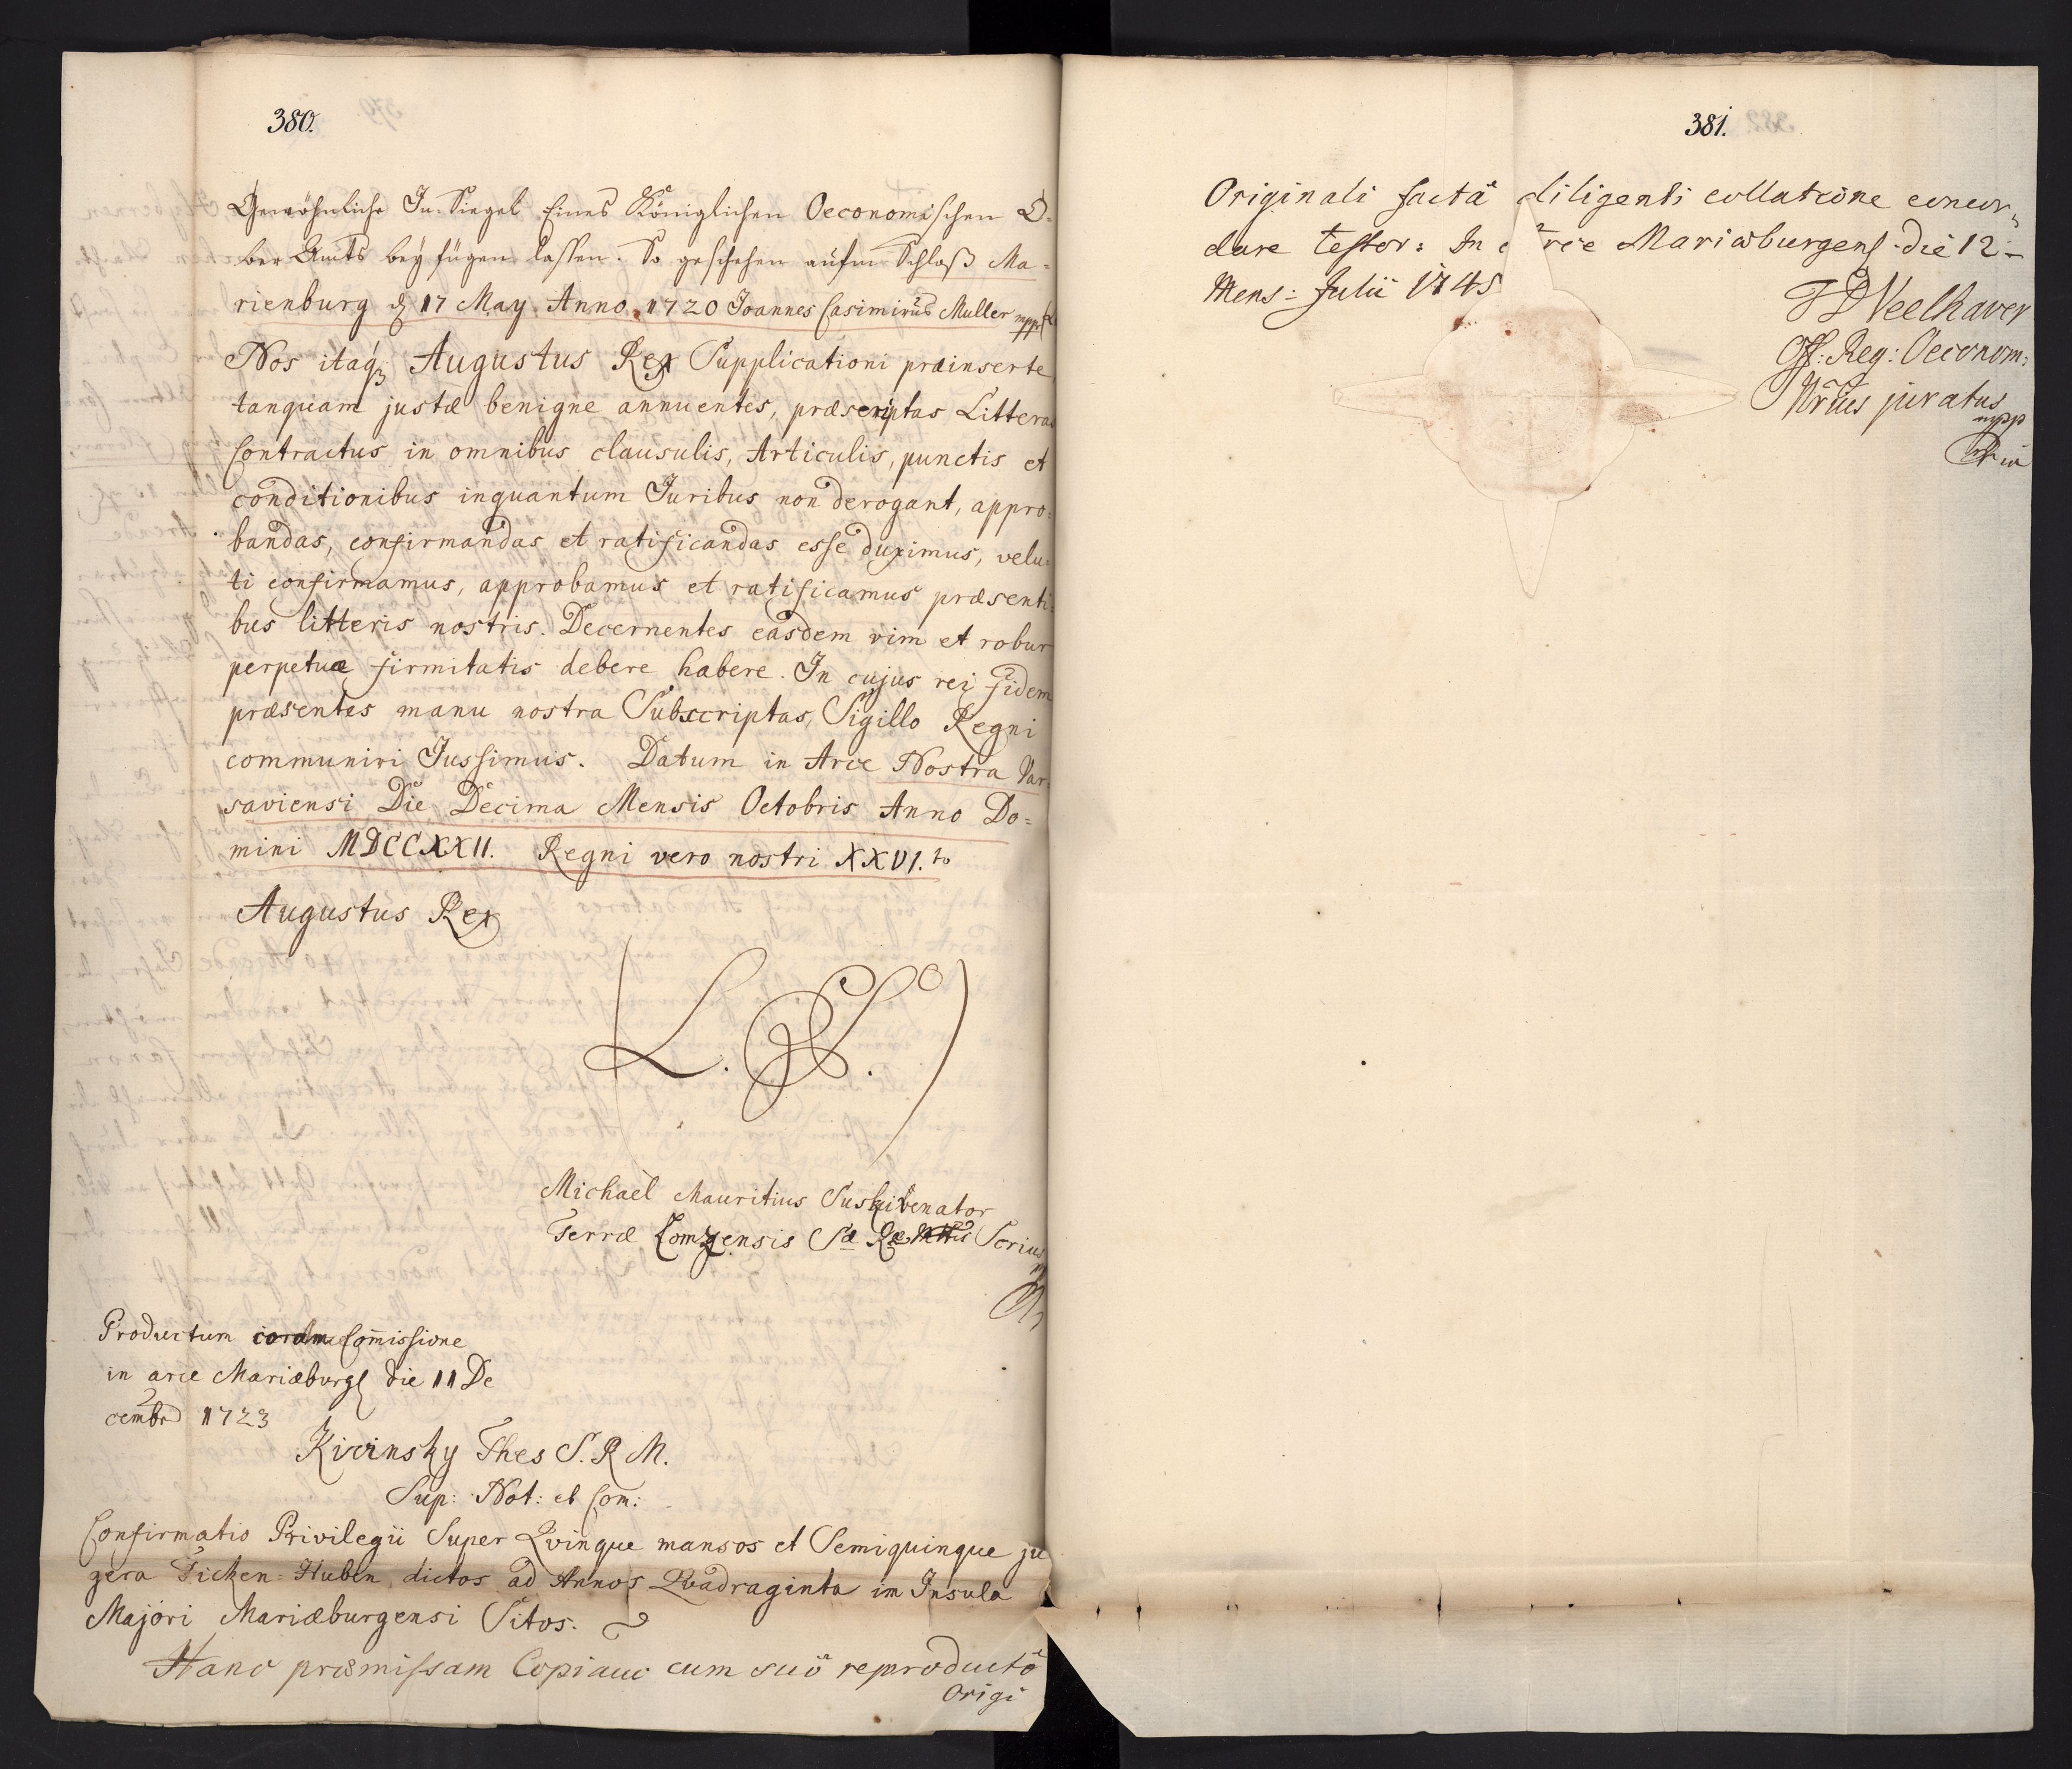 380.
Gewöhnliche In-Siegel Eines Königlichen Oeconomischen O-
ber Amts bey fügen lassen. So geschehen aufm Schloß Ma-
rienburg d 17 May Anno 1720 Joannes Casimirus Muller mpp
Nos itaq₃ Augustus Rex Supplicationi præinserte
tanquam justæ benigne annuentes, præscriptas Litteras
Contractus in omnibus clausulis, Articulis, punctis et
conditionibus inquantum Juribus non derogant, appro=
bandas, confirmandas et ratificandas esse duximus, velu-
ti confirmamus, approbamus et ratificamus præsenti=
bus litteris nostris. Decernentes easdem vim et robur
perpetuæ firmitatis debere habere. In cujus rei fidem
præsentes manu nostra Subscriptas, Sigillo Regni
communiri Jussimus. Datum in Arce Nostra Var=
saviensi Die Decima Mensis Octobris Anno Do=
mini MDCCXXII. Regni vero nostri XXVI.to
Augustus Rex
(L. S.)
Michaël Mauritius Suski Venator
Terræ Lomzensis Sæ Ræ Mttis Scrius
Productum coram Com̄issione
in arce Mariæburg die 11 De
cembr 1723
Kicinsky Thes S. R M.
Sup: Not: et Com:
Confirmatio Privilegii Super Qvinque mansos et Semiquinque ju
gera Ticken-Huben dictos ad Annos Qvadraginta in Insula
Majori Mariæburgensi Sitos.
Hanc præmissam Copiam cum suô reproductô
Origi
381.
Originali factâ diligenti collatione concor„
dare testor: In rce Mariæburgens die 12-
Mens: Julii 1745
Veelhaver
Off: Reg: Oeconom:
Nrius juratus
mpp